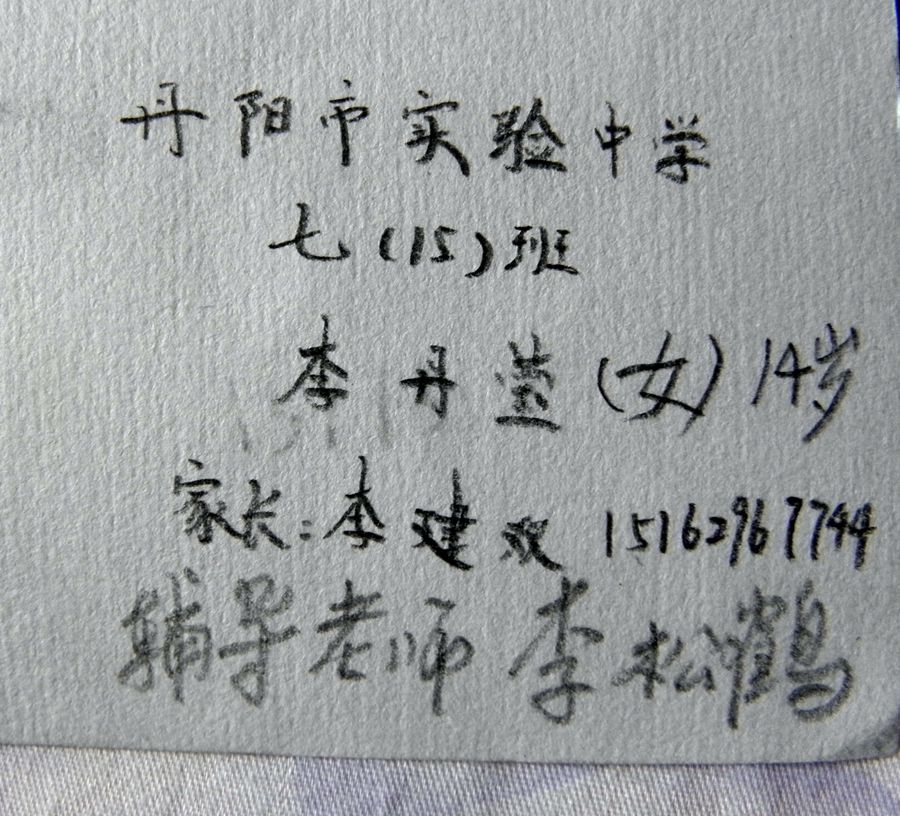 丹阳市实验中学
七(15)班
李丹莹(女)14岁
家长:李建双 15162967744
辅导老师 李松鹤